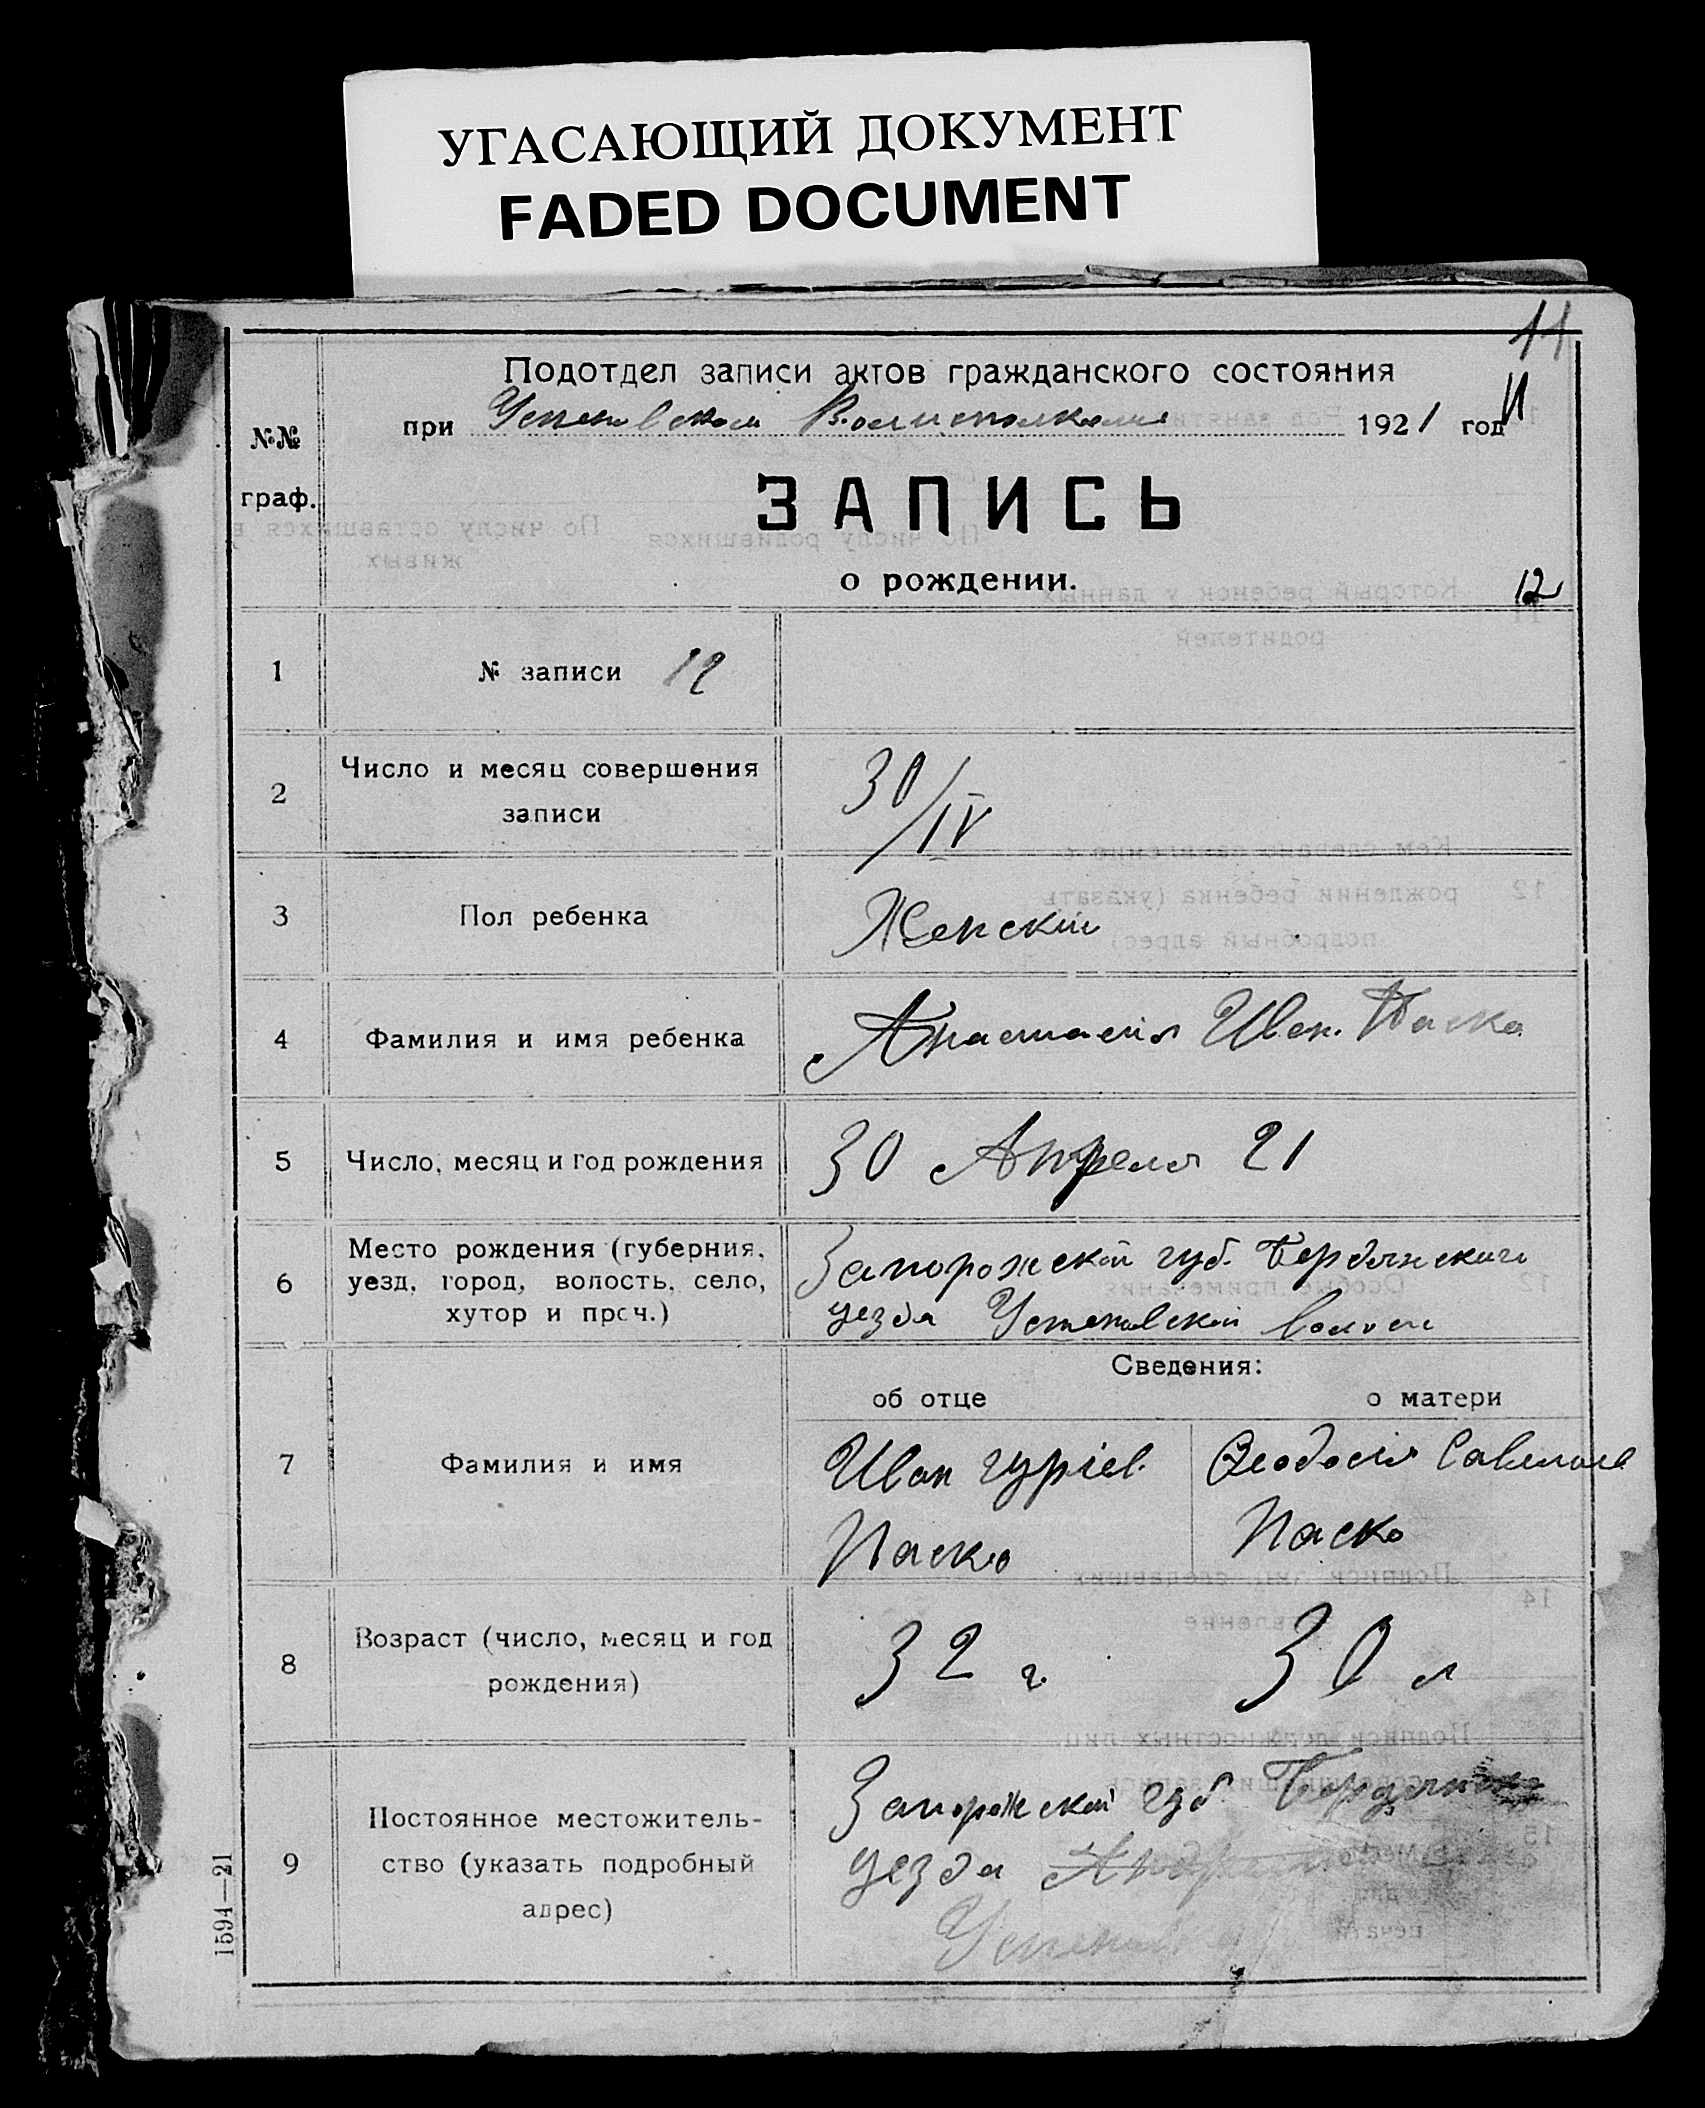 УГАСАЮЩИЙ ДОКУМЕНТ
FADED DOCUMENT
11
№№
граф.
Подотдел записи актов гражданского состояния
при Успеновском Волисполкоме 1921 год
ЗАПИСЬ
о рождении.
12
1 № записи 12
2 Число и месяц совершения
записи
30/IV
3 Пол ребенка Женскій
4 Фамилия и имя ребенка Анастасія Иван. Паско
5 Число, месяц и год рождения 30 Апреля 21
6 Место рождения (губерния,
уезд, город, волость, село,
хутор и проч.)
Запорожской губ. Бердянскаго
уезда Успеновской волости
Сведения:
об отце о матери
7 Фамилия и имя
Иван Гуріев.
Паско
Феодосія
Паско
8 Возраст (число, месяц и год
рождения)
32 г. 30 л
9 Постоянное местожитель-
ство (указать подробный
адрес)
Запорожской губ Бердянск
уезда
1594—21